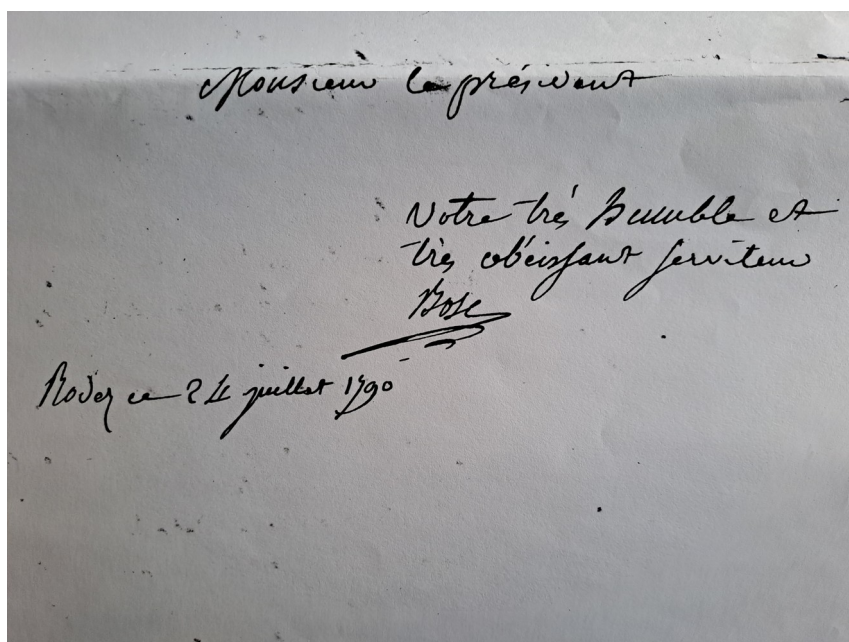 Monsieur le président
Votre trés humble et
très obéissant serviteur
Bosc
Rodez ce 24 juillet 1790